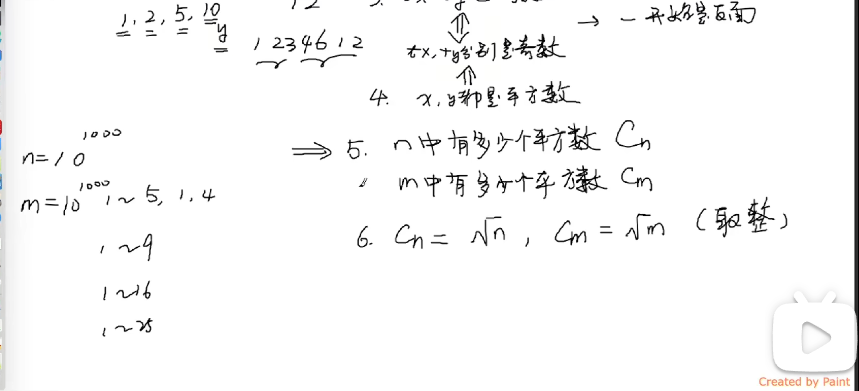 1, 2, 5, 10
y
1 2 3 4 6 1 2
→ 一开始是反面
tx, ty分别是奇数
4. x, y都是平方数
n=10^1000
⇒ 5. n中有多少个平方数 Cn
m=10^1000
1~5, 1, 4
m中有多少个平方数 Cm
6. Cn = √n, Cm = √m (取整)
1~9
1~16
1~25
Created by Paint